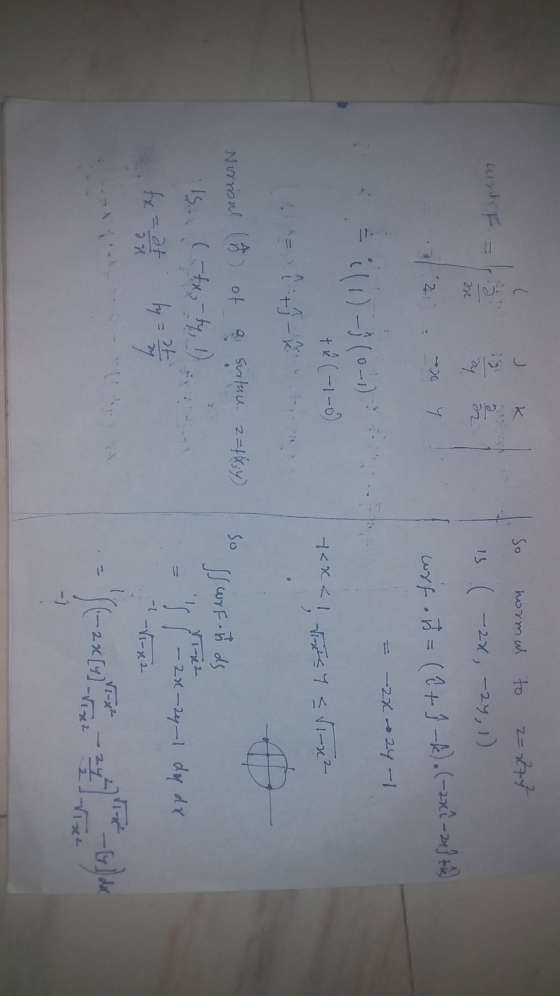 curl F = | i j k |
∂/∂x ∂/∂y ∂/∂z
z -x y |
= î(1) - ĵ(0-1)
+ k̂(-1-0)
= î + ĵ - k̂
Normal (n̂) of a surface z=f(x,y)
is (-fx, -fy, 1)
fx = ∂f/∂x fy = ∂f/∂y
So normal to z=x²+y²
is (-2x, -2y, 1)
curl F · n̂ = (î + ĵ - k̂) · (-2xî - 2yĵ + k̂)
= -2x - 2y - 1
-1 < x < 1, √1-x² ≤ y ≤ √1-x²
So ∬ curl F · n̂ ds
= ∫₋₁¹ ∫_{-√1-x²}^{√1-x²} -2x - 2y - 1 dy dx
= ∫₋₁¹ (-2x[y]_{-√1-x²}^{√1-x²} - 2y²/2]_{-√1-x²}^{√1-x²} - [y]) dx